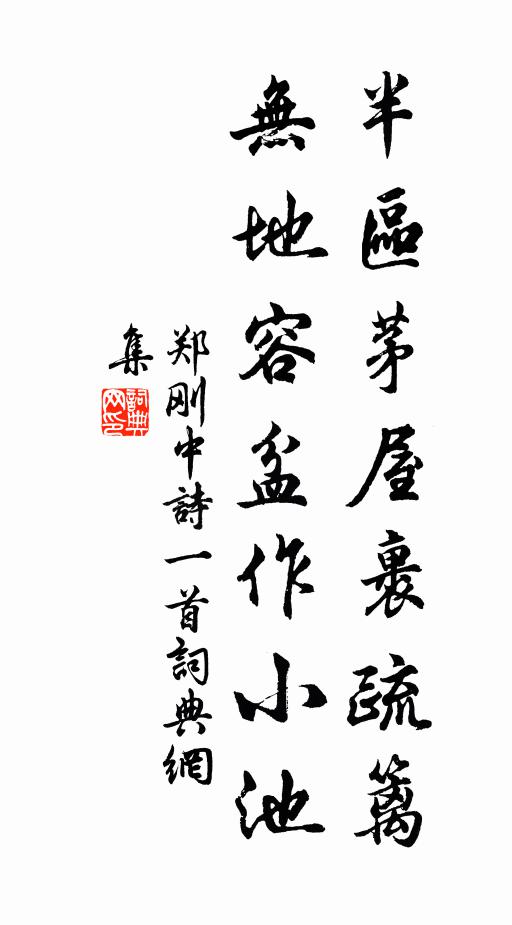 半區茅屋裹疏篱
無地容盆作小池
郑刚中詩一首詞典網
集
詞典
网印